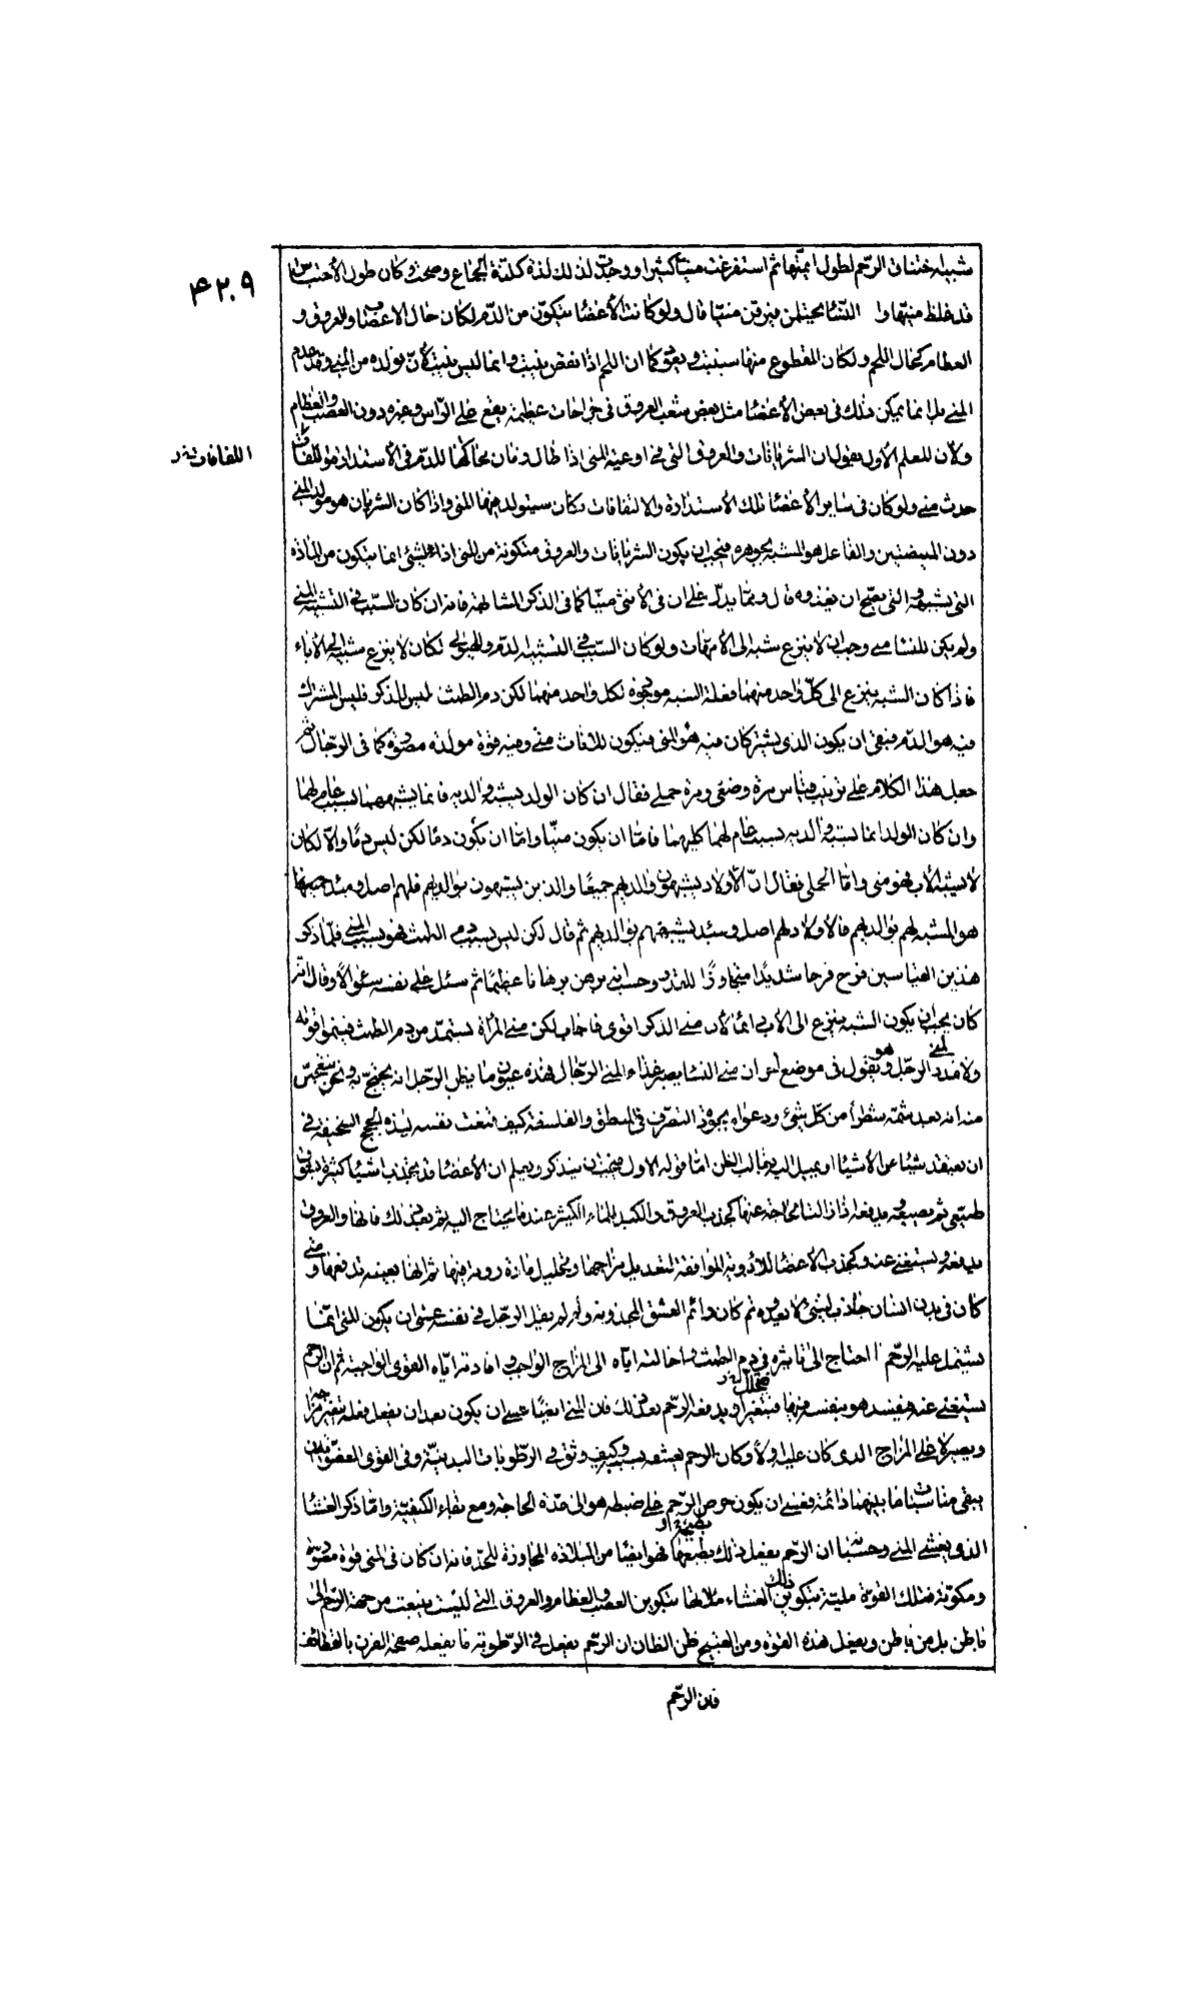 شبيه اختناق الرحم لطول ايمتها ثم استفرغت منيا كثيرا ووجدت لذلك لذة كلذة الجماع وصحت وكان طول الاحتباس
قد غلظ منيها و النساء يحتلمن فيرقن منيا قال ولو كانت الأعضاء يتكون من الدم لكان حال الاعصاب والعروق و
العظام كحال اللحم ولكان المقطوع منها سينبت ويعود كما ان اللحم اذا نقص ينبت وانما ليس ينبت لأن تولده من المني وقد عدم
المني بل انما يمكن ذلك فى بعض الأعضاء مثل بعض شعب العروق فى جراحات عظيمة يقع على الرأس وغيره دون العصب والعظام
ولأن المعلم الأول يقول ان الشريانات والعروق التى فى اوعية المنى اذا طال زمان مخالطتها للدم فى الأستدارة واللفافات
اللفافات
۴۲۰۹
حدث منى ولو كان فى ساير الأعضاء تلك الأستدارة والالتفافات لكان سيتولد فيها المنى واذا كان الشريان هو مولد المنى
دون البيضتين والفاعل هو المشبه بجوهره فيجب ان يكون الشريانات والعروق متكونة من المنى اذ الشىء انما يتكون من المادة
التى يشبهه والتى يصلح ان يغذوه قال ومما يدل على ان فى الأنثى منيا كما فى الذكر المشابهة فانه ان كان السبب فى التشبيه المنى
ولم يكن للنساء منى وجب ان لا ينزع شبه الى الأمهات ولو كان السبب فى التشبيه الدم لكان لا ينزع شبه الى الأباء
فاذا كان الشبه ينزع الى كل واحد منهما فعلة الشبه موجودة لكل واحد منهما لكن دم الطمث ليس للذكر فليس المشترك
فيه هو الدم فبقى ان يكون الذى يشتركان فيه هو المنى فيكون للاناث منى وفيه قوة مولدة مصورة كما فى الرجال ثم
جعل هذا الكلام على ترتيب قياس مرة وضعى ومرة حملى فقال ان كان الولد يشبه والديه فانما يشبههما بسبب عام لهما
وان كان الولد انما يشبه والديه بسبب عام لهما كليهما فاما ان يكون منيا واما ان يكون دما لكن ليس دما والا لكان
لا يشبه الأب فهو منى واما الحملى فقال ان الأولاد يشبهون والديهم جميعا والذين يشبهون والديهم فلهم اصل ومبدء
هو المشبه لهم بوالديهم فالاولاد لهم اصل ومبدء يشبههم بوالديهم ثم قال لكن ليس بسبب دم الطمث فهو بسبب المنى فلما ذكر
هذين القياسين فرح فرحا شديدا متجاوزا للقدر وحسب انه برهن برهانا عظيما ثم سئل على نفسه سؤالا وقال انه
كان يجب ان يكون الشبه ينزع الى الأب دائما لأن منى الذكر اقوى فاجاب لكن منى المرأة يستمد من دم الطمث
ولا مدد لمنى الرجل وهو يقول فى موضع اخر ان منى النساء يصير غذاء لمنى الرجال فهذه عيون ما يظن الرجل انه يحتج به ونحن نتعجب
منه انه بعد شمه شطرا من كل شىء ودعواه بجودة التصرف فى المنطق والفلسفة كيف قنعت نفسه بهذه الحجج السخيفة فى
ان يعتقد شيئا عن الأشياء او يميل اليه غالب الظن اما قوله الاول فيجب ان يتذكر ويعلم ان الأعضاء قد يجذب اشياء كثيرة بشوق
طبيعى ثم يدفعه اذا زالت الحاجة عنها كجذب العروق والكبد للماء الكثير عندما يحتاج اليه ثم بعد ذلك فانها والعروق
يدفعه ويستغنى عنه وكجذب الأعضاء للأدوية الموافقة لتعديل مزاجها وتحليل مادة ردية فيها ثم انها بعينها تدفعها ومتى
كان فى بدن انسان جاذب لشىء كان دائم العشق لمجذوبه ولم لم يقل الرجل فى نفسه عسى ان يكون المنى انما
يشتمل عليه الرحم احتاج الى تاثيره فى دم الطمث واحالته اياه الى المزاج الواجب وافادته اياه القوى الواجبة ثم ان الرحم
يستغنى عنه فيفسد هو بنفسه فيها فيتغير او يدفعه الرحم بعد ذلك فان المنى ايضا عسى ان يكون بعد ان يفعل فعله يتغير مزاجه
ويصير لا على المزاج الذى كان عليه اولا وكان الرحم يعشقه بسببه وفى الرطوبات البدنية وفى القوى
يبقى مناسبات ما بينهما دائمة فعسى ان يكون حرص الرحم على ضبطه هو الى مدة الحاجة ومع بقاء الكيفية واما ذكر الغشاء
الذى يغشى المنى وحسبانه ان الرحم يفعل ذلك بطبعها فهو ايضا من البلادة المجاوزة للحد فانه ان كان فى المنى قوة مصورة
ومكونة فتلك القوة ملية بتكوين ذلك الغشاء مثلا انها بتكوين العصب والعظام والعروق التى ليست ينبعث من جهة الرحم الى
باطن بل من باطن ويفعل هذه القوة ومن القبيح ظن الظان ان الرحم يفعل فى الرطوبة ما يفعله صفحة الفرن بالقطائف
فان الرحم